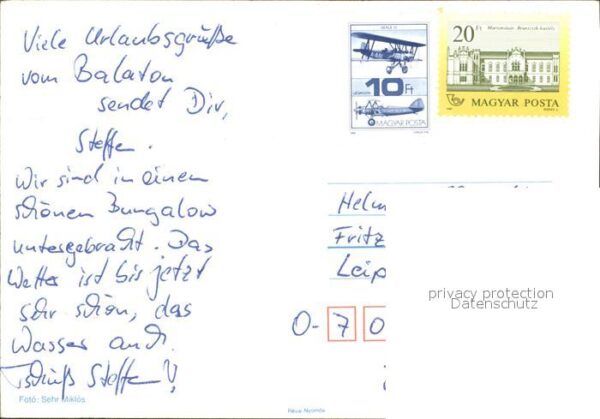 Viele Urlaubsgrüße
vom Balaton
sendet Dir,
Steffen.
Wir sind in einem
schönen Bungalow
untergebracht. Das
Wetter ist bis jetzt
sehr schön, das
Wasser auch.
Tschüß Steffen
10 Ft
MAGYAR POSTA
20 Ft
MAGYAR POSTA
Helm
Fritz
Leip
O-70
privacy protection
Datenschutz
Fotó: Sehr Miklós
Révai Nyomda